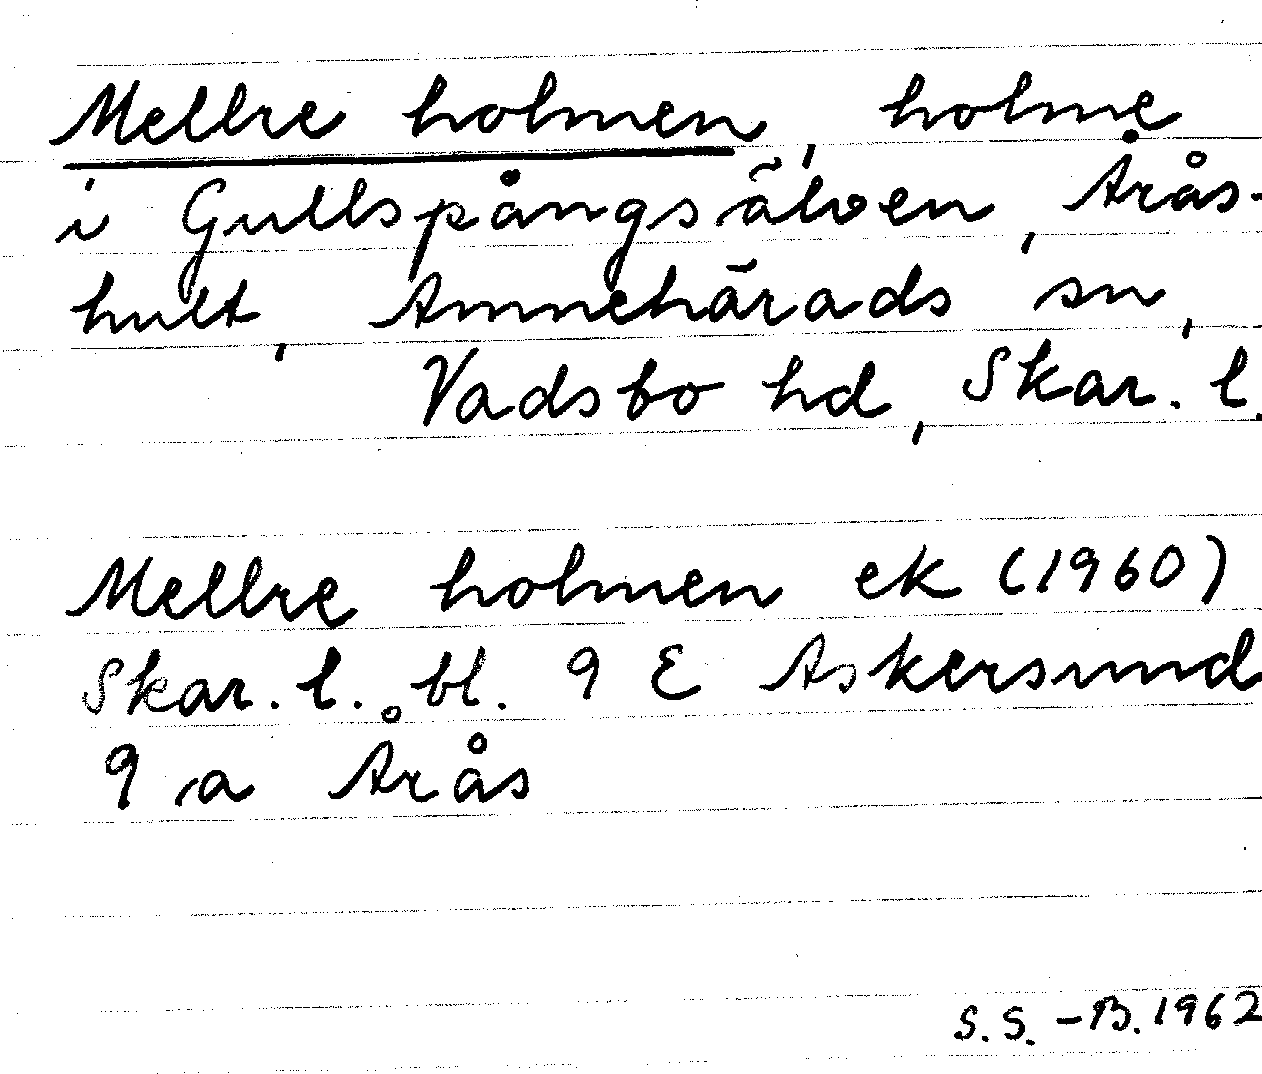 Mellre holmen, holme
i Gullspångsälven, Årås-
hult, Amnehärads sn,
Vadsbo hd, Skar. l.
Mellre holmen ek (1960)
Skar. l. bl. 9 E Askersund
9 a Årås
S.S.-B. 1962